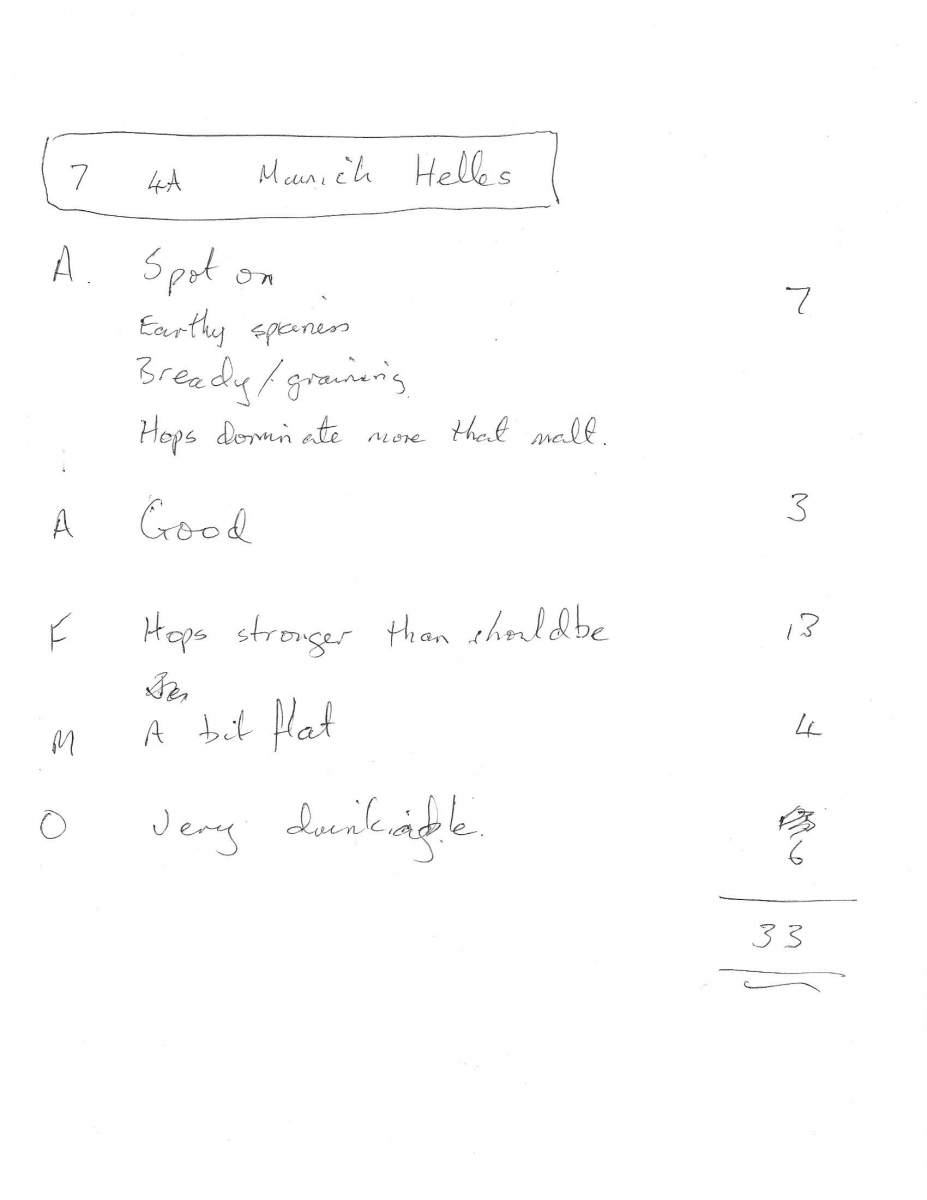 7 4A Munich Helles
A. Spot on 7
Earthy spiciness
Bready/graininis
Hops dominate more that malt.
A Good 3
F Hops stronger than should be 13
M A bit flat 4
O Very drinkable.
6
33